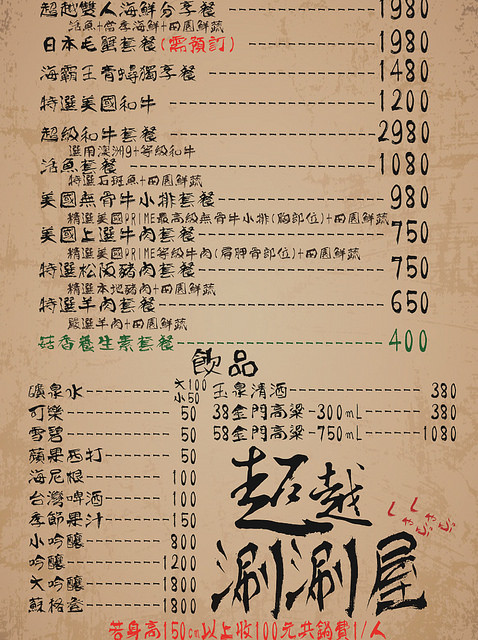 超越雙人海鮮分享餐 1980
活魚+當季海鮮+田園鮮蔬
日本毛蟹套餐(需預訂) 1980
海霸王青蟳獨享餐 1480
特選美國和牛 1200
超級和牛套餐 2980
選用澳洲9+等級和牛
活魚套餐 1080
特選石斑魚+田園鮮蔬
美國無骨牛小排套餐 980
精選美國PRIME最高級無骨牛小排(胸部位)+田園鮮蔬
美國上選牛肉套餐 750
精選美國PRIME等級牛肉(肩胛骨部位)+田園鮮蔬
特選松阪豬肉套餐 750
精選本地豬肉+田園鮮蔬
特選羊肉套餐 650
嚴選羊肉+田園鮮蔬
菇香養生素套餐 400
飲品
礦泉水 大100 小50
可樂 50
雪碧 50
蘋果西打 50
海尼根 100
台灣啤酒 100
季節果汁 150
小吟釀 800
吟釀 1200
大吟釀 1800
蘇格登 1800
玉泉清酒 380
38金門高粱-300mL 380
58金門高粱-750mL 1080
超越
しゃぶ
しゃぶ
涮涮屋
若身高150cm以上收100元共鍋費1/人